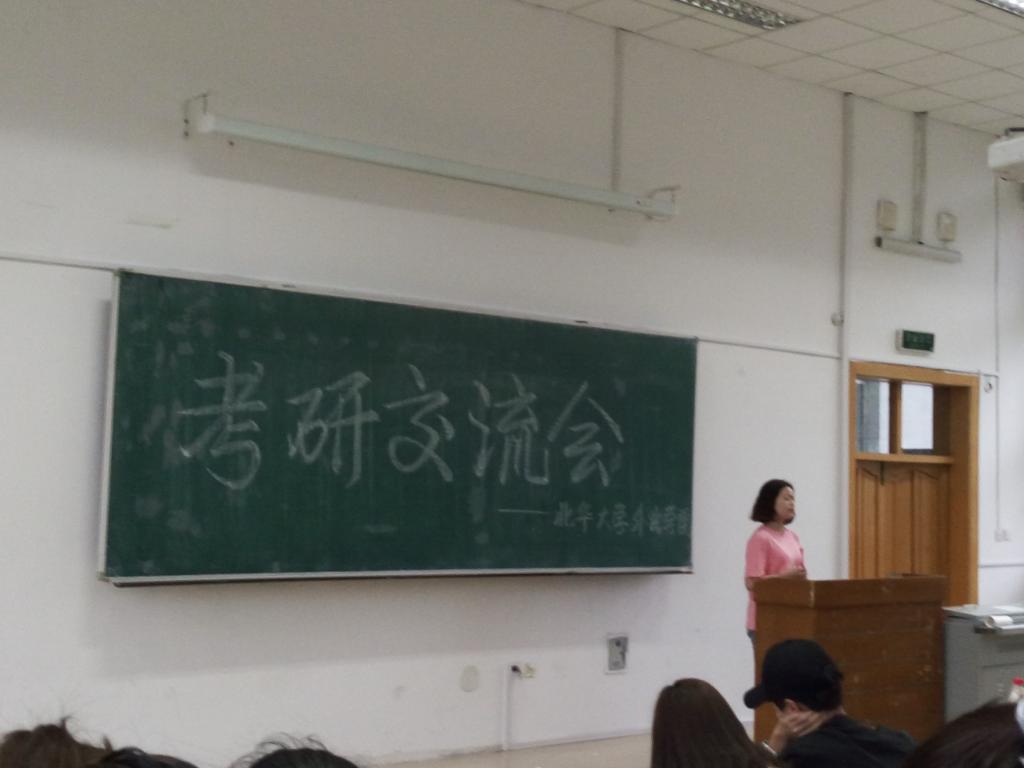 考研交流会
——北华大学外